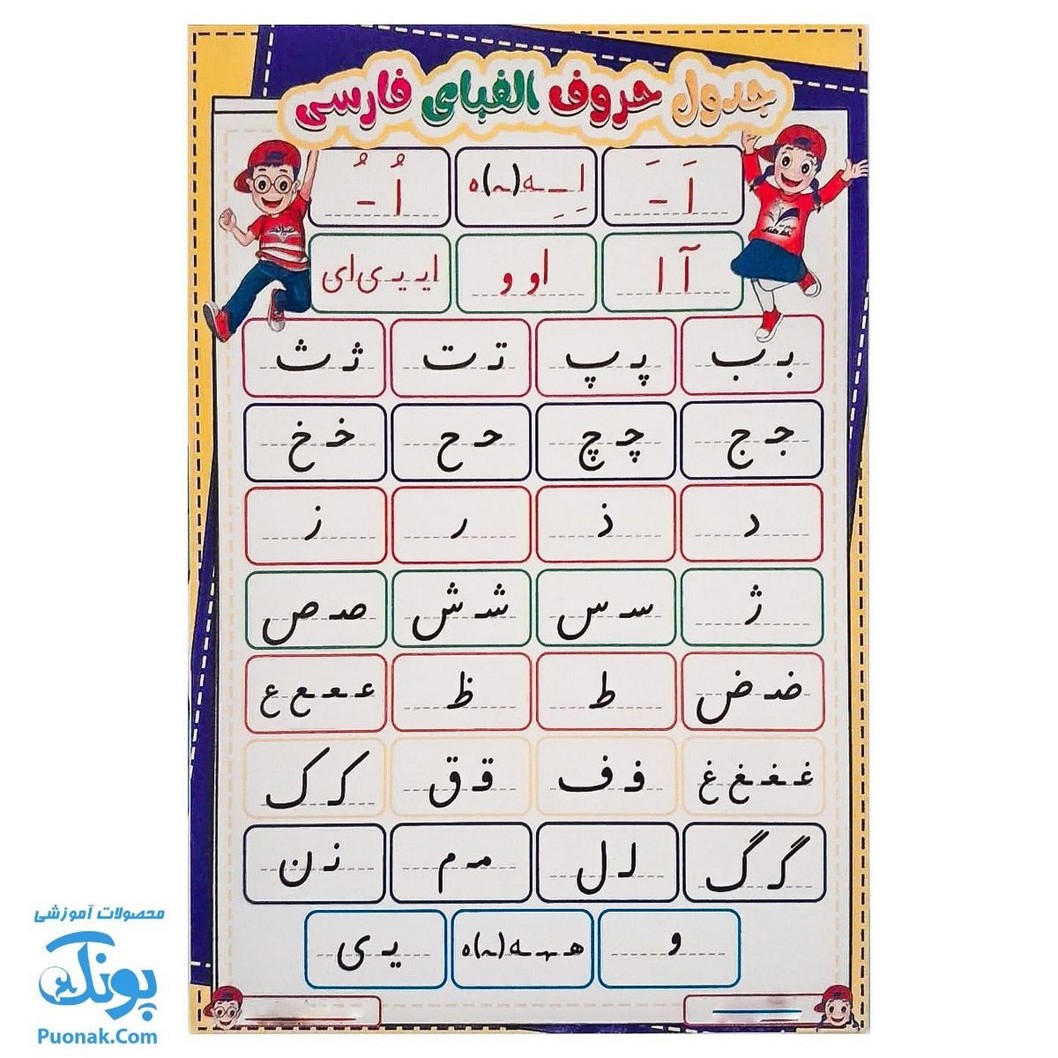 جدول حروف الفبای فارسی
اَ ـَ اِ ـِ ـه(ـہ)ه اُ ـُ
آ ا او و ایـ یـ ی ای
بـ ب پـ پ تـ ت ثـ ث
جـ ج چـ چ حـ ح خـ خ
د ذ ر ز
ژ سـ س شـ ش صـ ص
ضـ ض ط ظ عـ ـعـ ـع ع
غـ ـغـ ـغ غ فـ ف قـ ق کـ ک
گـ گ لـ ل مـ م نـ ن
و هـ ـهـ ـه(ـہ)ه یـ ی
محصولات آموزشی
پونک
Puonak.Com